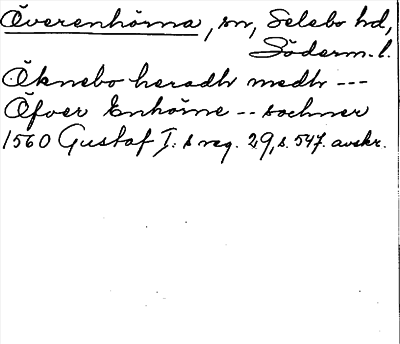 Överenhörna, sn, Selebo hd,
Söderm. l.
Öknebo heradh medh ---
Öfver Enhörne -- sochner
1560 Gustaf I:s reg. 29, s. 547. avskr.